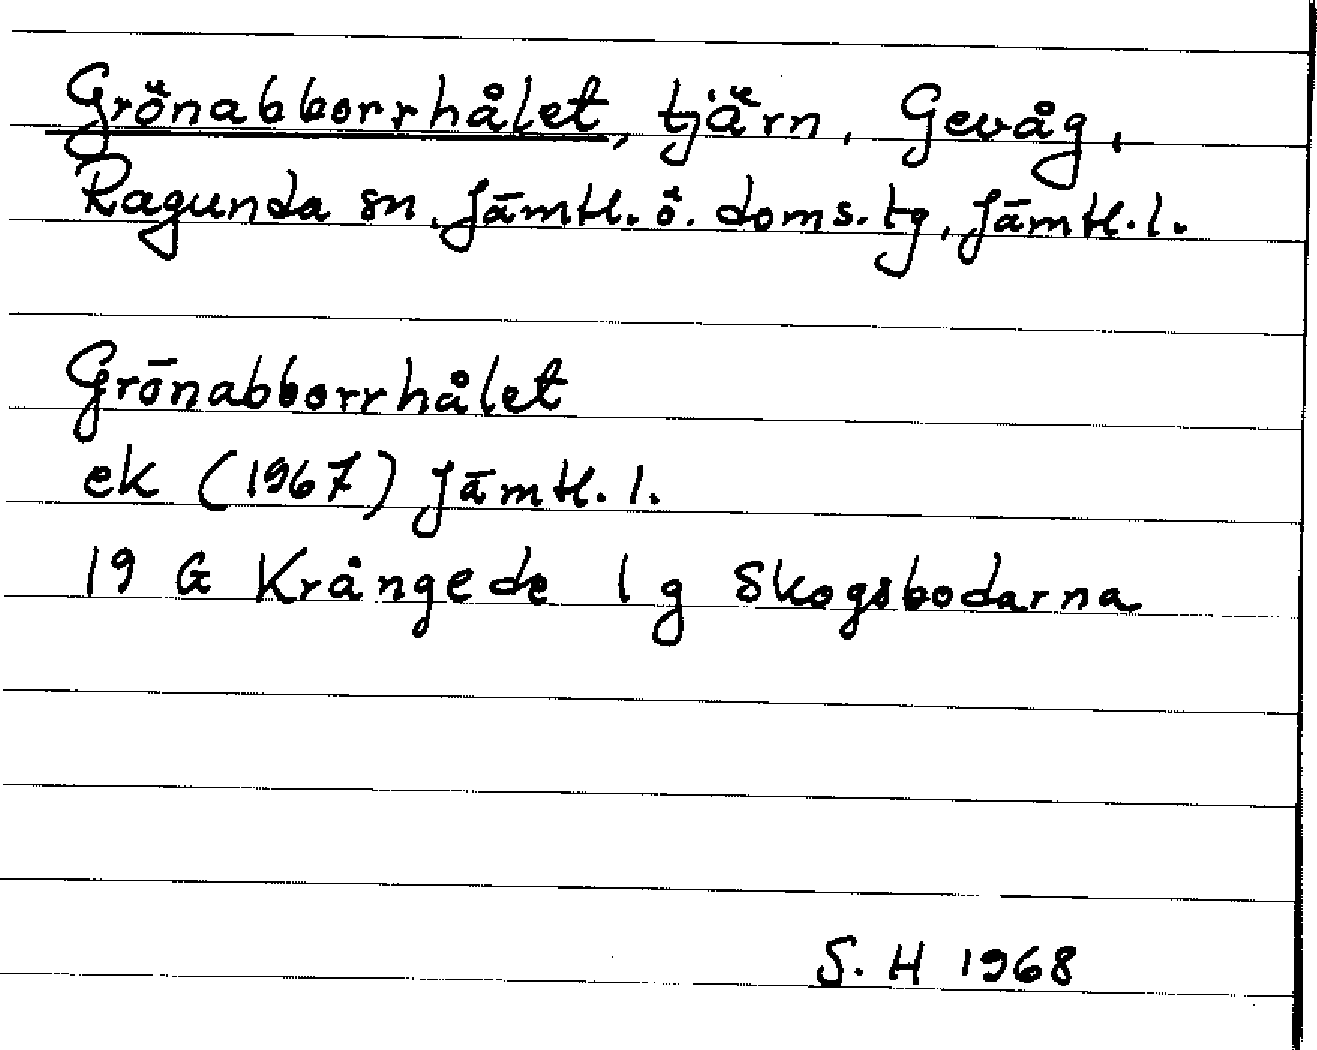 Grönabborrhålet, tjärn, Gevåg,
Ragunda sn, Jämtl. ö. doms. tg, Jämtl. l.
Grönabborrhålet
ek (1967) Jämtl. l.
19 G Krångede 1 g Skogsbodarna
S. H 1968